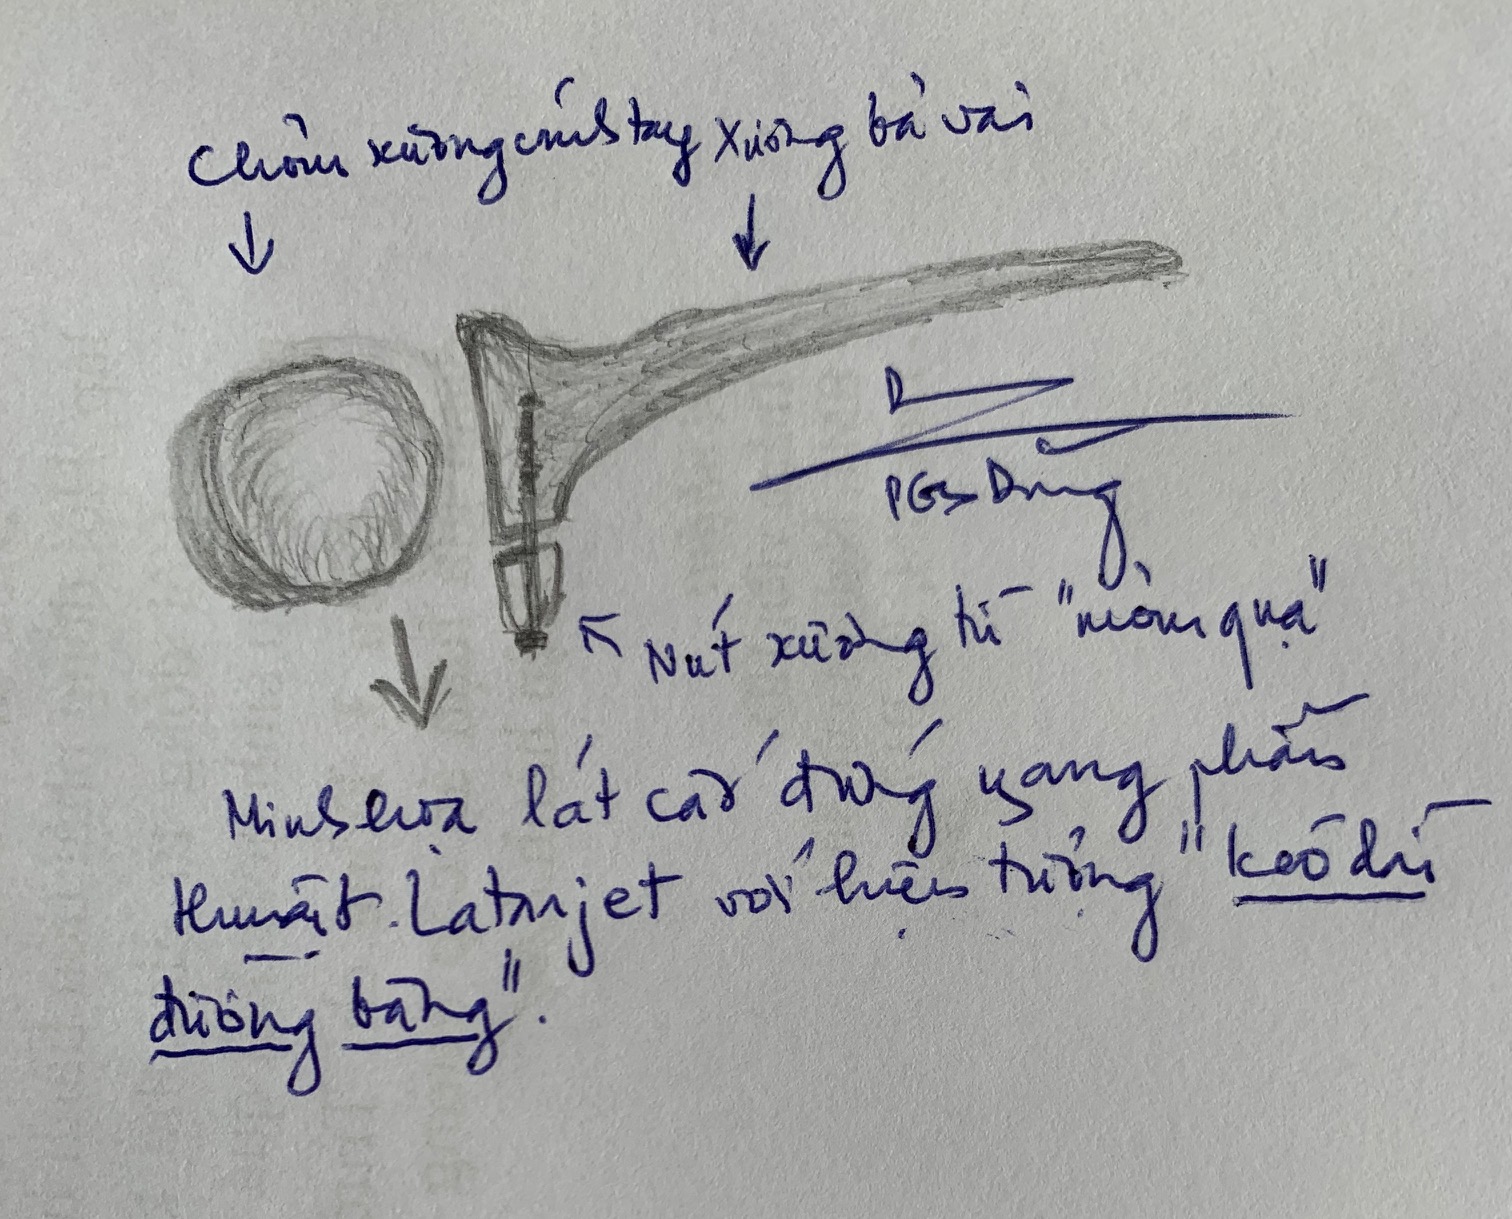 Chỏm xương cánh tay Xương bả vai
PGS Dũng
Nút xương từ "mỏm quạ"
Minh họa lát cắt đứng ngang phẫu
thuật Latarjet với hiện tượng "kéo dài
đường băng".